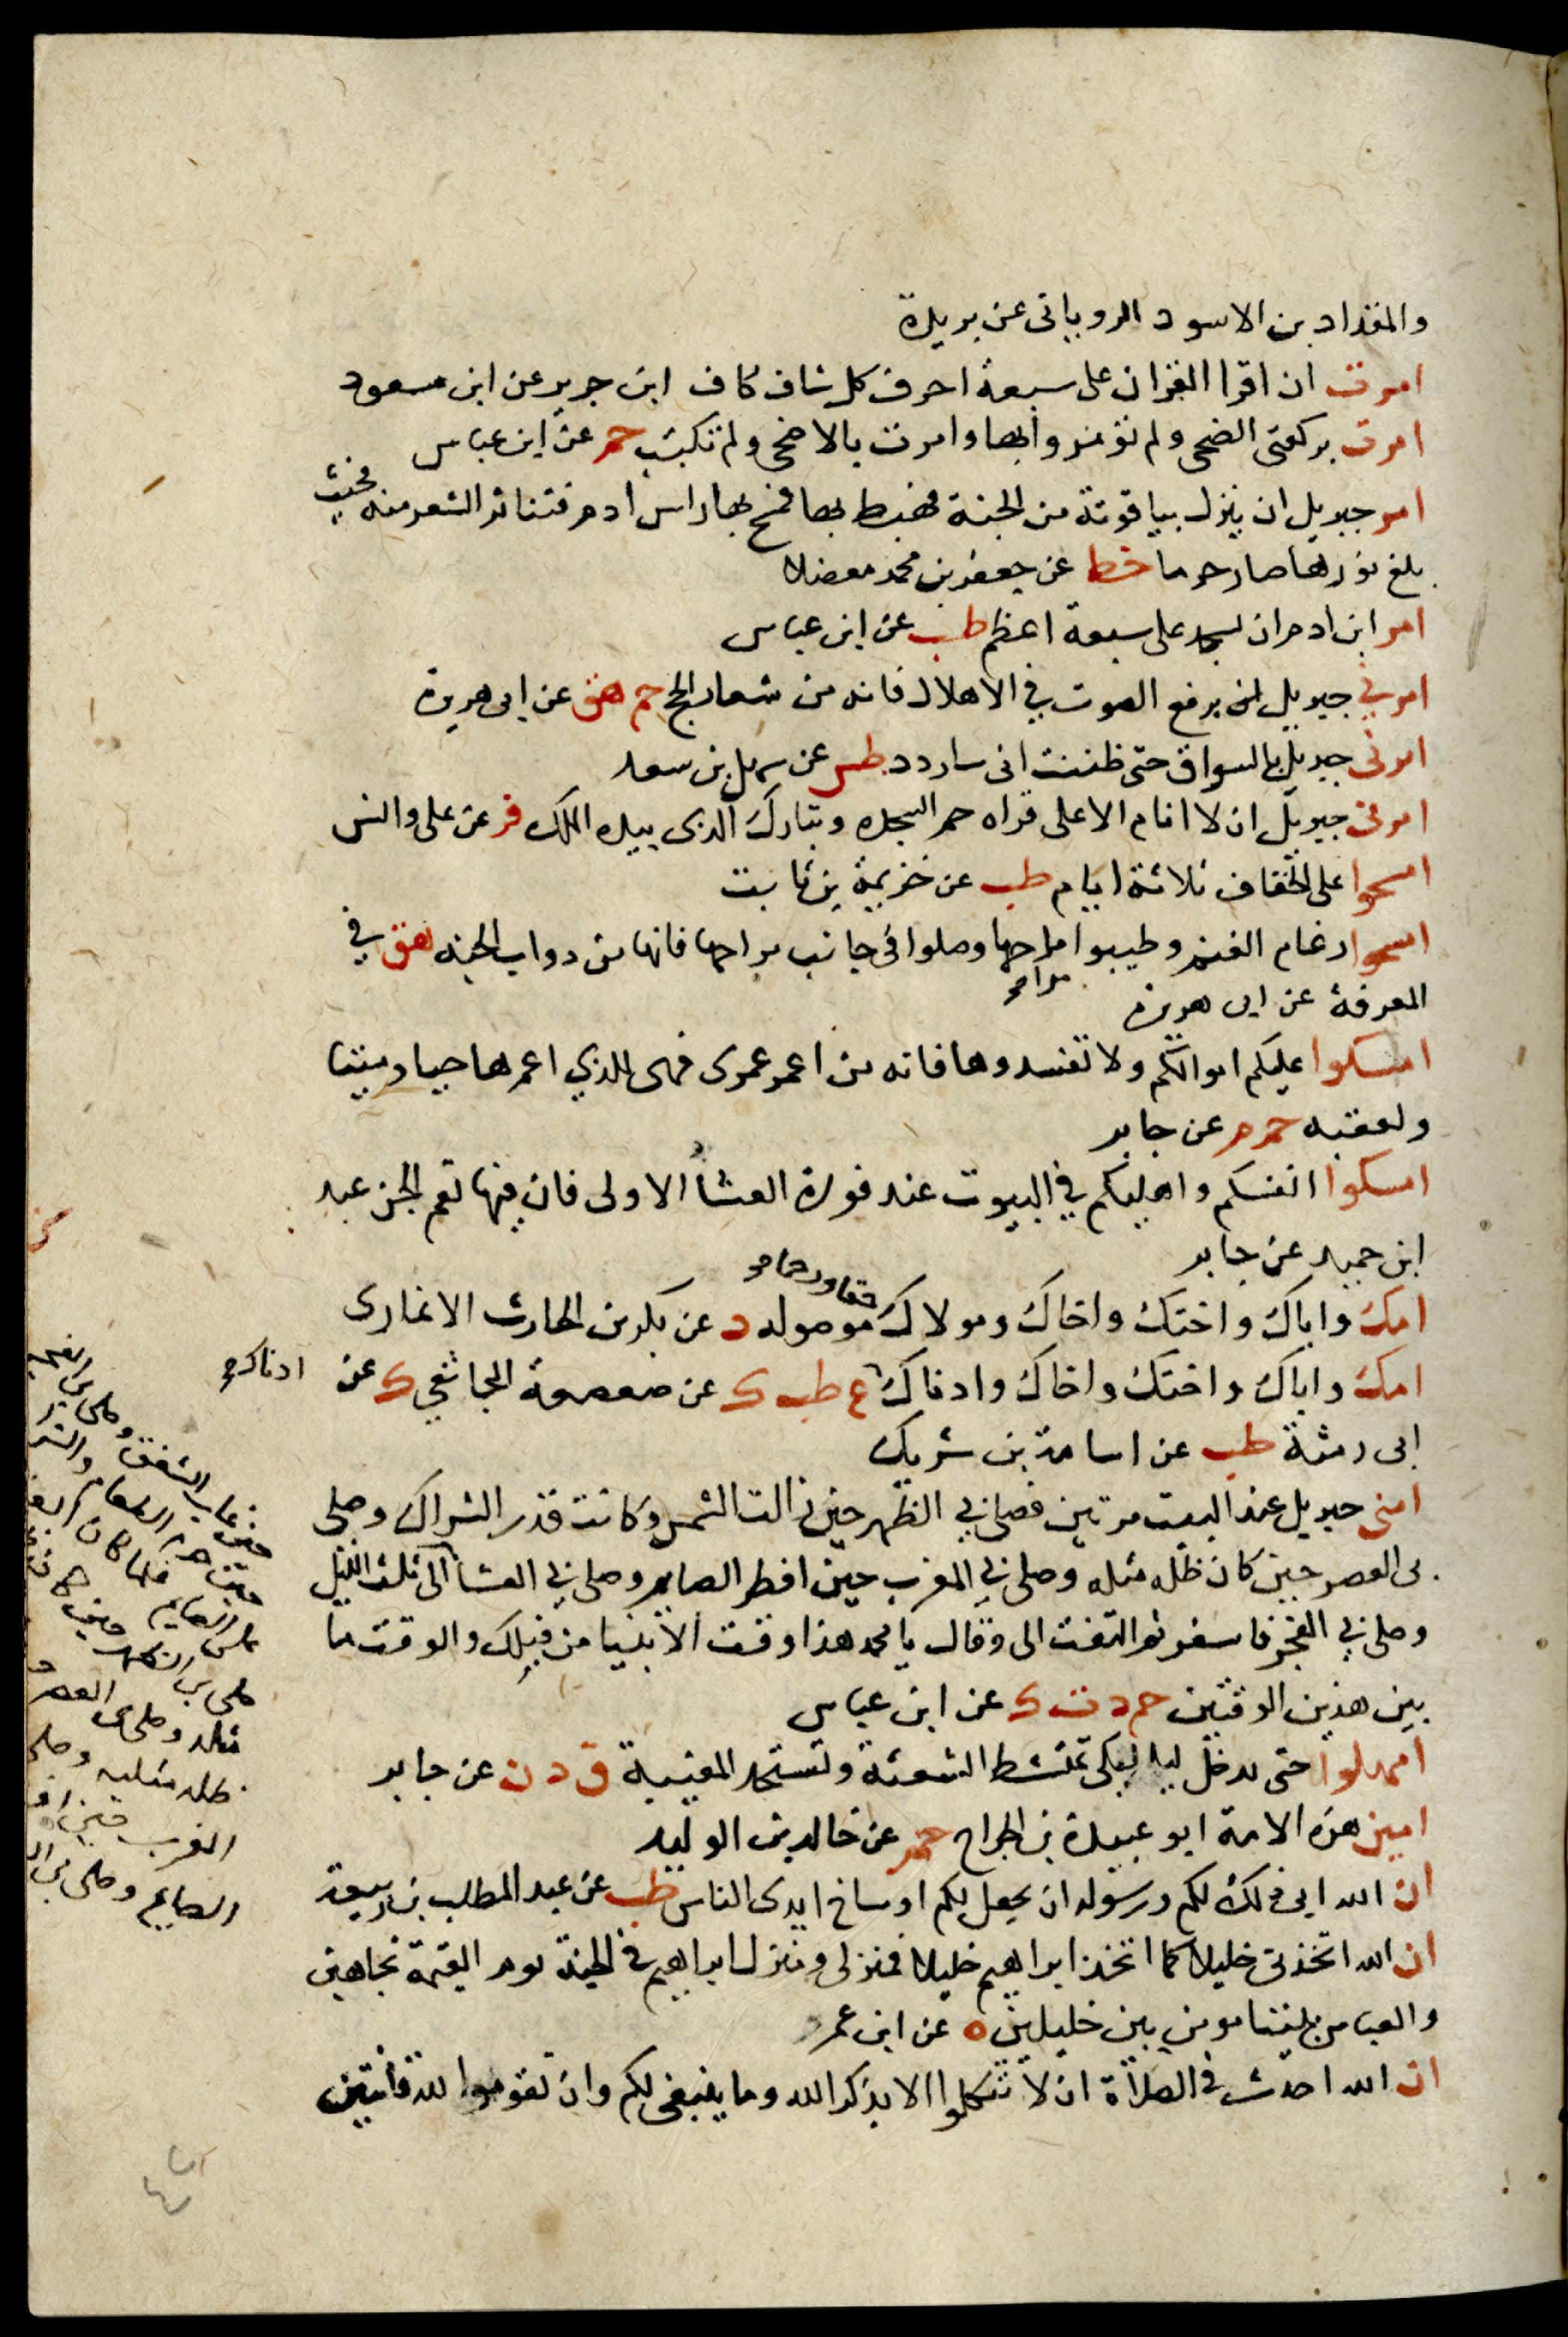 والمقداد بن الاسود الرویانی عن بریدة
امرت ان اقرا القران علی سبعة احرف كل شاف كاف ابن جریر عن ابن مسعود
امرت بركعتی الضحی ولم تؤمروا بها وامرت بالاضحی ولم تكتب حم عن ابن عباس
امر جبریل ان ینزل بیاقوتة من الجنة فهبط بها فمسح بها راس ادم فتناثر الشعر منه فحیث
بلغ نورها صار حرما خط عن جعفر بن محمد معضلا
امر ابن ادم ان یسجد علی سبعة اعظم طب عن ابن عباس
امرنی جبریل ان برفع الصوت فی الاهلال فانه من شعار الحج حم هق عن ابی هریرة
امرنی جبریل بالسواك حتی ظننت انی سادرد طس عن سهل بن سعد
امرنی جبریل ان لا انام الا علی قراه حم السجده وتبارك الذی بیده الملك فر عن علی وانس
امسحوا علی الخفاف ثلاثة ایام طب عن خزیمة بن ثابت
امسحوا رغام الغنم وطیبوا مراحها وصلوا فی جانب مراحها فانها من دواب الجنه هق فی
المعرفة عن ابی هریرة
امسكوا علیكم اموالكم ولا تفسدوها فانه من اعمر عمری فهی للذی اعمرها حیا ومیتا
ولعقبه حم م عن جابر
امسكوا انفسكم واهلیكم فی البیوت عند فورة العشا الاولی فان فیها تعم الجن عبد
ابن حمید عن جابر
امك واباك واختك واخاك ومولاك موصوله د عن بكر بن الحارث الانماری
امك واباك واختك واخاك وادناك ع طب ك عن صعصعة المجاشعی ك عن
ادناك
ابی رمثة طب عن اسامة بن شریك
امنی جبریل عند البیت مرتین فصلی بی الظهر حین زالت الشمس وكانت قدر الشراك وصلی
بی العصر حین كان ظله مثله وصلی بی المغرب حین افطر الصایم وصلی بی العشا الی ثلث اللیل
وصلی بی الفجر فاسفر ثم التفت الی وقال یا محمد هذا وقت الانبیا من قبلك والوقت ما
بین هذین الوقتین حم د ت ك عن ابن عباس
امهلوا حتی ندخل لیلا لكی تمتشط الشعثة وتستحد المغیبة ق د ن عن جابر
امین هذه الامة ابو عبیدة بن الجراح حم عن خالد بن الولید
ان الله ابی ذلك لكم ورسوله ان یجعل لكم اوساخ ایدی الناس طب عن عبد المطلب بن ربیعة
ان الله اتخذنی خلیلا كما اتخذ ابراهیم خلیلا فمنزلی ومنزل ابراهیم فی الجنة یوم القیمة تجاهین
والعباس بیننا مومن بین خلیلین ه عن ابن عمر
ان الله احدث فی الصلاة ان لا تتكلموا الا بذكر الله وما ینبغی لكم وان تقوموا لله قانتین
حین غاب الشفق وصلی بی الفجر
حین حرم الطعام والشر
علی الصایم فلما كان الغد
صلی بی الظهر حین كان
مثله وصلی بی العصر
ظله مثلیه وصلی
المغرب حین
الصایم وصلی بی